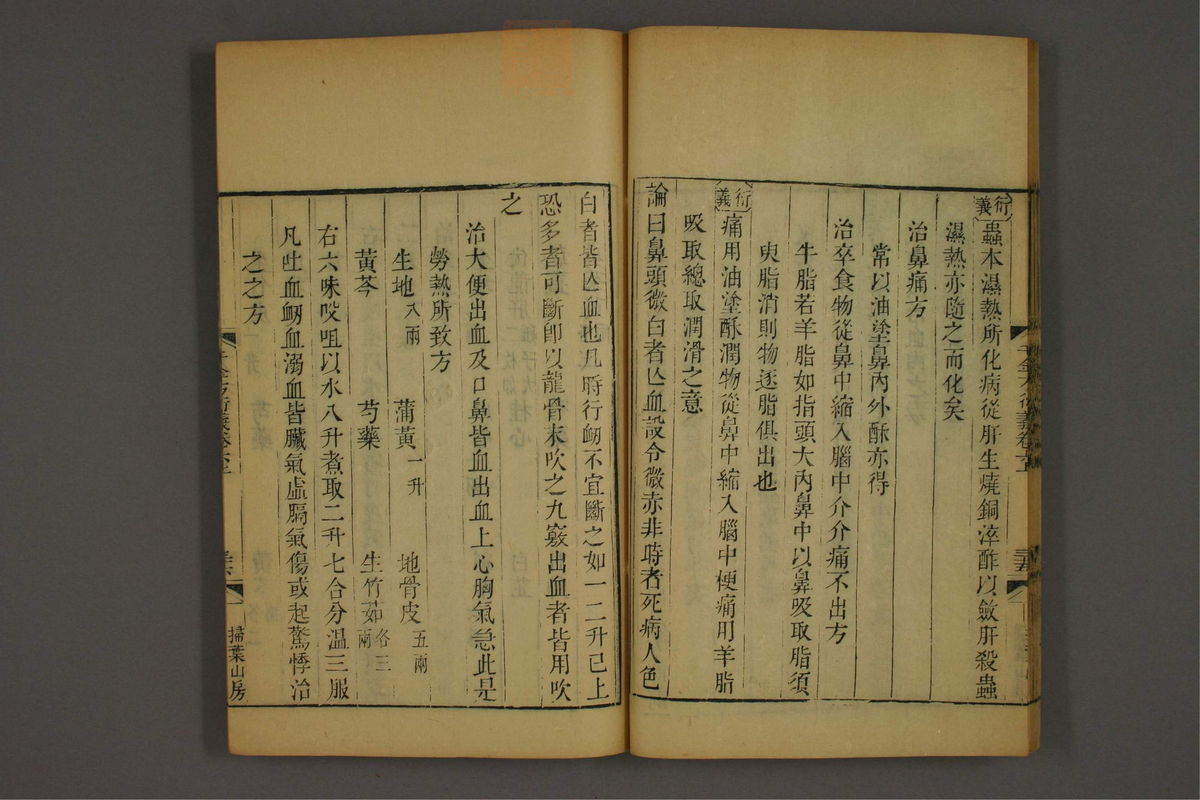 衍義蟲本濕熱所化病從肝生燒銅淬酢以斂肝殺蟲
濕熱亦隨之而化矣
治鼻痛方
常以油塗鼻內外酥亦得
治卒食物從鼻中縮入腦中介介痛不出方
牛脂若羊脂如指頭大內鼻中以鼻吸取脂須
臾脂消則物逐脂俱出也
衍義痛用油塗酥潤物從鼻中縮入腦中梗痛用羊脂
吸取總取潤滑之意
論曰鼻頭微白者亾血設令微赤非時者死病人色
白者皆亾血也凡時行衂不宜斷之如一二升已上
恐多者可斷卽以龍骨末吹之九竅出血者皆用吹
之
治大便出血及口鼻皆血出血上心胸氣急此是
勞熱所致方
生地八兩 蒲黃一升 地骨皮五兩
黃芩 芍藥 生竹茹各三兩
右六味㕮咀以水八升煮取二升七合分溫三服
凡吐血衂血溺血皆臟氣虛膈氣傷或起驚悸治
之之方
千金方衍義卷六上
掃葉山房